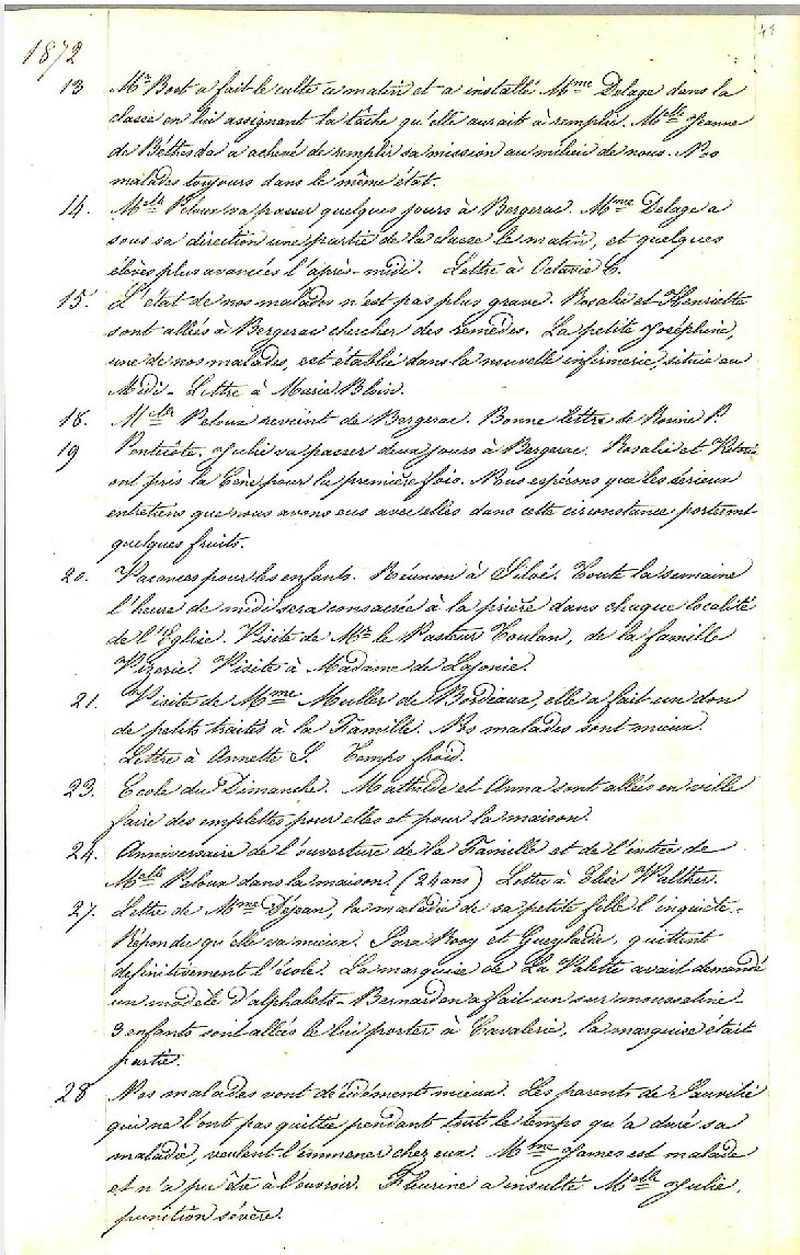 1872
13 Mr Bost a fait le culte ce matin et a installé Mme Delage dans la
classe en lui assignant la tâche qu'elle aurait à remplir. Melle Jeanne
de Béthesda a achevé de remplir sa mission au milieu de nous. Nos
malades toujours dans le même état.
14. Melle Peloux va passer quelques jours à Bergerac. Mme Delage a
sous sa direction une partie de la classe le matin, et quelques
élèves plus avancées l'après-midi. Lettre à Octavie C.
15. L'état de nos malades n'est pas plus grave. Rosalie et Henriette
sont allées à Bergerac chercher des remèdes. La petite Joséphine,
une de nos malades, est établie dans la nouvelle infirmerie, située au
Midi - Lettre à Marie Bloin.
18. Melle Peloux revient de Bergerac. Bonne lettre de Rosine P.
19 Pentecôte. Julie va passer deux jours à Bergerac. Rosalie et
ont pris la Cène pour la première fois. Nous espérons que les sérieux
entretiens que nous avons eus avec elles dans cette circonstance porteront
quelques fruits.
20. Vacances pour les enfants. Réunion à Siloé. Toute la semaine
l'heure de midi sera consacrée à la prière dans chaque localité
de l'Eglise. Visite de Mr le Pasteur Toulan, de la famille
Vizerie. Visite à Madame de Lajonie.
21. Visite de Mme Muller de Bordeaux, elle a fait un don
de petits traités à la Famille. Nos malades sont mieux.
Lettre à Annette S. Temps froid.
23. Ecole du Dimanche. Mathilde et Anna sont allées en ville
faire des emplettes pour elles et pour la maison.
24. Anniversaire de l'ouverture de la Famille et de l'entrée de
Melle Peloux dans la maison. (24 ans) Lettre à Elise Walther.
27. Lettre de Mme Déjean, la maladie de sa petite fille l'inquiète -
Répondu qu'elle va mieux. Sara Rooy et Gueyladie, quittent
définitivement l'école. La marquise de La Valette avait demandé
un modèle d'alphabets - Bernarden a fait un sur mousseline -
3 enfants sont allées le lui porter à Cavalerie, la marquise était
partie.
28 Nos malades vont décidément mieux. Les parents de Saurélie
qui ne l'ont pas quittée pendant tout le temps qu'a duré sa
maladie, veulent l'emmener chez eux. Mme James est malade
et n'a pu être à l'ouvroir. Fleurine a insulté Melle Julie,
punition sévère.